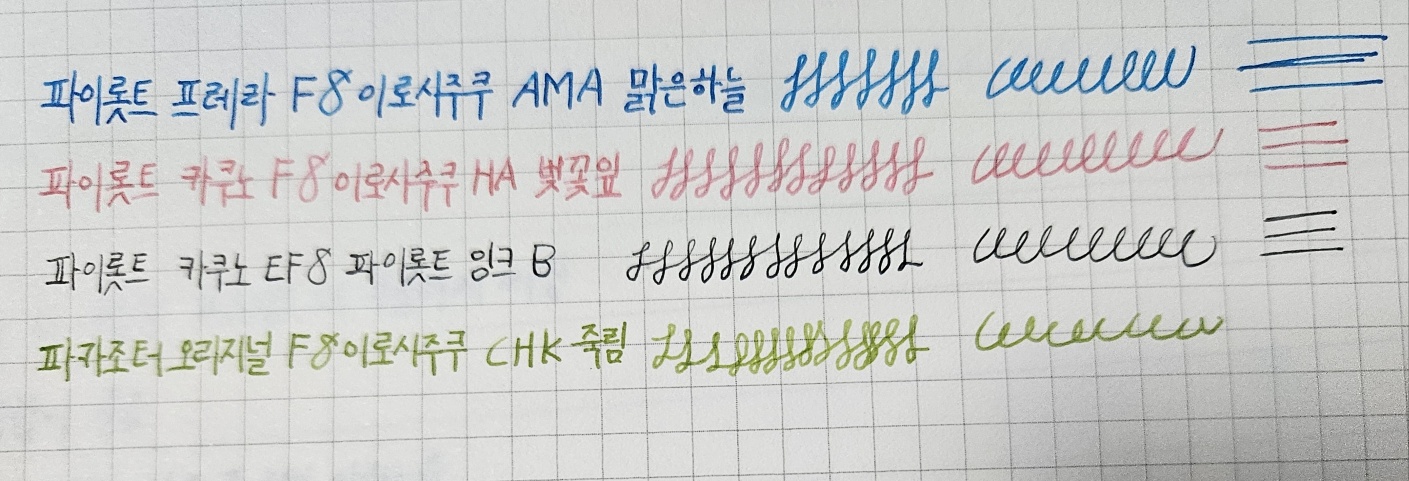 파이롯트 프레라 F8 이로시주쿠 AMA 맑은하늘
파이롯트 카쿠노 F8 이로시주쿠 HA 벚꽃잎
파이롯트 카쿠노 EF8 파이롯트 잉크 B
파카조터 오리지널 F8 이로시주쿠 CHK 죽림